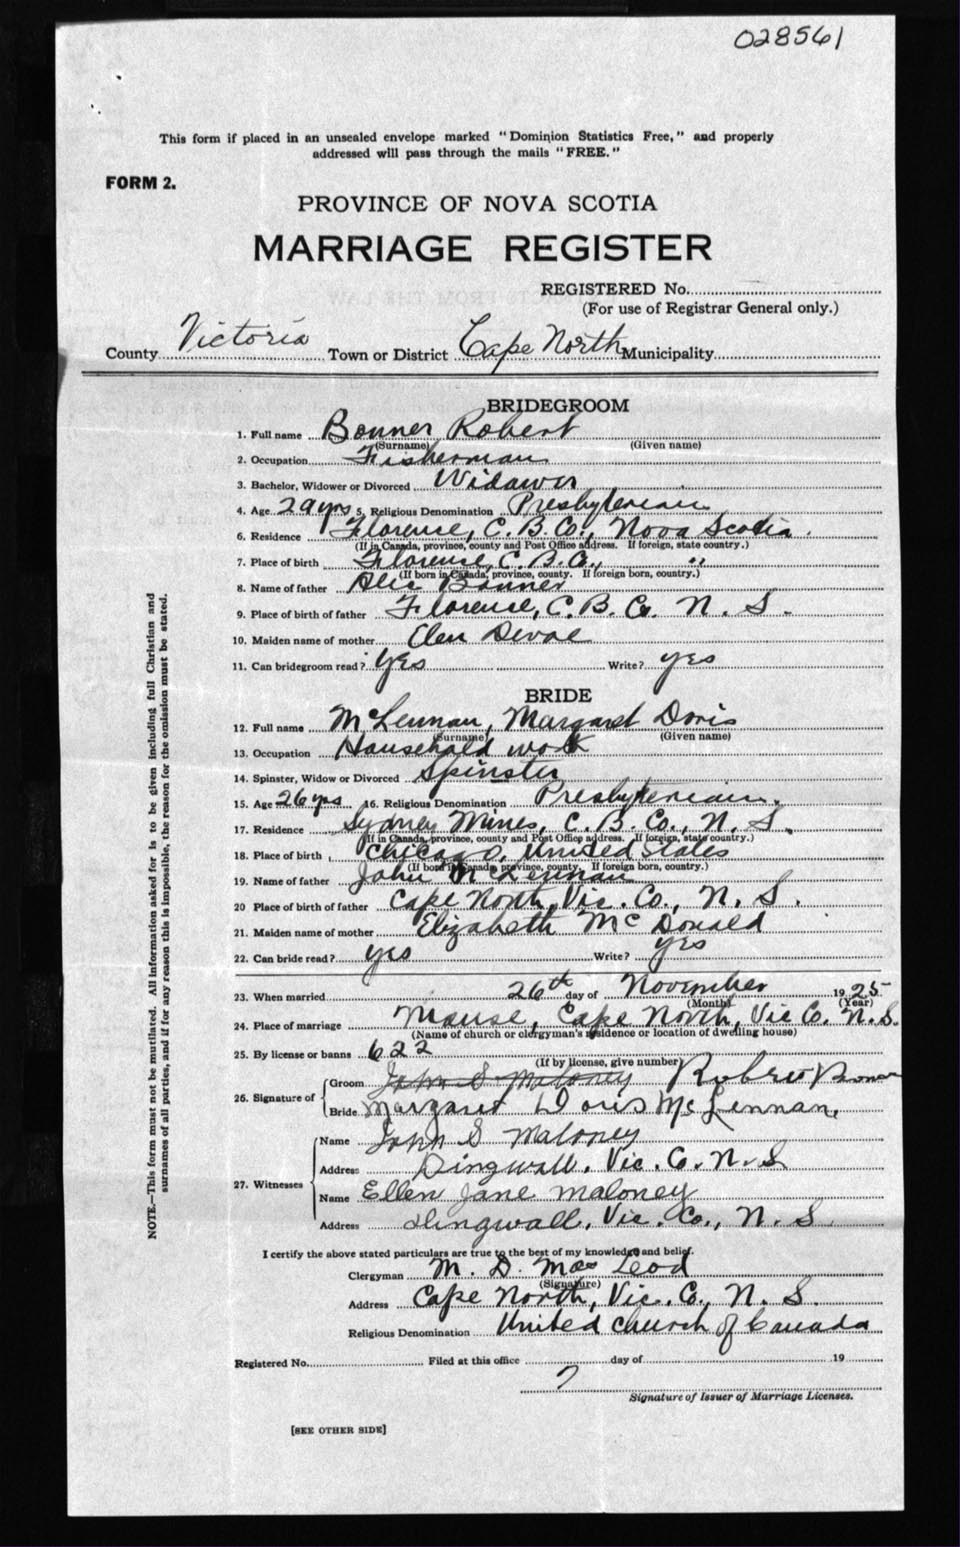 028561
This form if placed in an unsealed envelope marked "Dominion Statistics Free," and properly
addressed will pass through the mails "FREE."
FORM 2.
PROVINCE OF NOVA SCOTIA
MARRIAGE REGISTER
REGISTERED No.
(For use of Registrar General only.)
County Victoria Town or District Cape North Municipality
BRIDEGROOM
1. Full name Bonner Robert
(Surname) (Given name)
2. Occupation Fisherman
3. Bachelor, Widower or Divorced Widawer
4. Age 29 yrs 5. Religious Denomination Presbyterian
6. Residence Florence, C. B. Co., Nova Scotia.
(If in Canada, province, county and Post Office address. If foreign, state country.)
7. Place of birth Florence, C. B. Co., "
(If born in Canada, province, county. If foreign born, country.)
8. Name of father Alic Bonner
9. Place of birth of father Florence, C. B. Co. N. S.
10. Maiden name of mother Clen Devoe
11. Can bridegroom read? yes Write? yes
BRIDE
12. Full name McLennan, Margaret Doris
(Surname) (Given name)
13. Occupation Household work
14. Spinster, Widow or Divorced Spinster
15. Age 26 yrs 16. Religious Denomination Presbyterian.
17. Residence Sydney Mines, C. B. Co., N. S.
(If in Canada, province, county and Post Office address. If foreign, state country.)
18. Place of birth Chicago, United States
(If born in Canada, province, county. If foreign born, country.)
19. Name of father John McLennan
20 Place of birth of father Cape North, Vic. Co., N. S.
21. Maiden name of mother Elizabeth McDonald
22. Can bride read? yes Write? yes
23. When married 26th day of November 1925
(Month) (Year)
24. Place of marriage Manse, Cape North, Vic Co. N. S.
(Name of church or clergyman's residence or location of dwelling house)
25. By license or banns 622
(If by license, give number)
26. Signature of Groom John S Maloney Robert Bonner
Bride Margaret Doris McLennan,
27. Witnesses Name John S Maloney
Address Dingwall, Vic. Co. N. S
Name Ellen Jane Maloney
Address Dingwall, Vic. Co., N. S.
I certify the above stated particulars are true to the best of my knowledge and belief.
Clergyman M. D. MacLeod
(Signature)
Address Cape North, Vic. Co., N. S.
Religious Denomination United Church of Canada
Registered No. Filed at this office day of 19
7
Signature of Issuer of Marriage Licenses.
[SEE OTHER SIDE]
NOTE.—This form must not be mutilated. All information asked for is to be given including full Christian and
surnames of all parties, and if for any reason this is impossible, the reason for the omission must be stated.